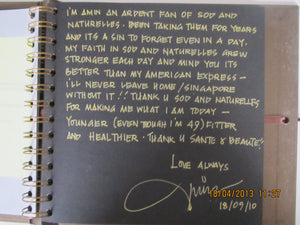 I'M AMIN AN ARDENT FAN OF SOD AND
NATURELLES. BEEN TAKING THEM FOR YEARS
AND ITS A SIN TO FORGET EVEN IN A DAY.
MY FAITH IN SOD AND NATURELLES GREW
STRONGER EACH DAY AND MIND YOU ITS
BETTER THAN MY AMERICAN EXPRESS -
I'LL NEVER LEAVE HOME/SINGAPORE
WITHOUT IT!! THANK U SOD AND NATURELLES
FOR MAKING ME WHAT I AM TODAY -
YOUNGER (EVEN THOUGH I'M 49) FITTER
AND HEALTHIER. THANK U SANTE & BEAUTE!!
LOVE ALWAYS
18/09/10
18/04/2013 11:27